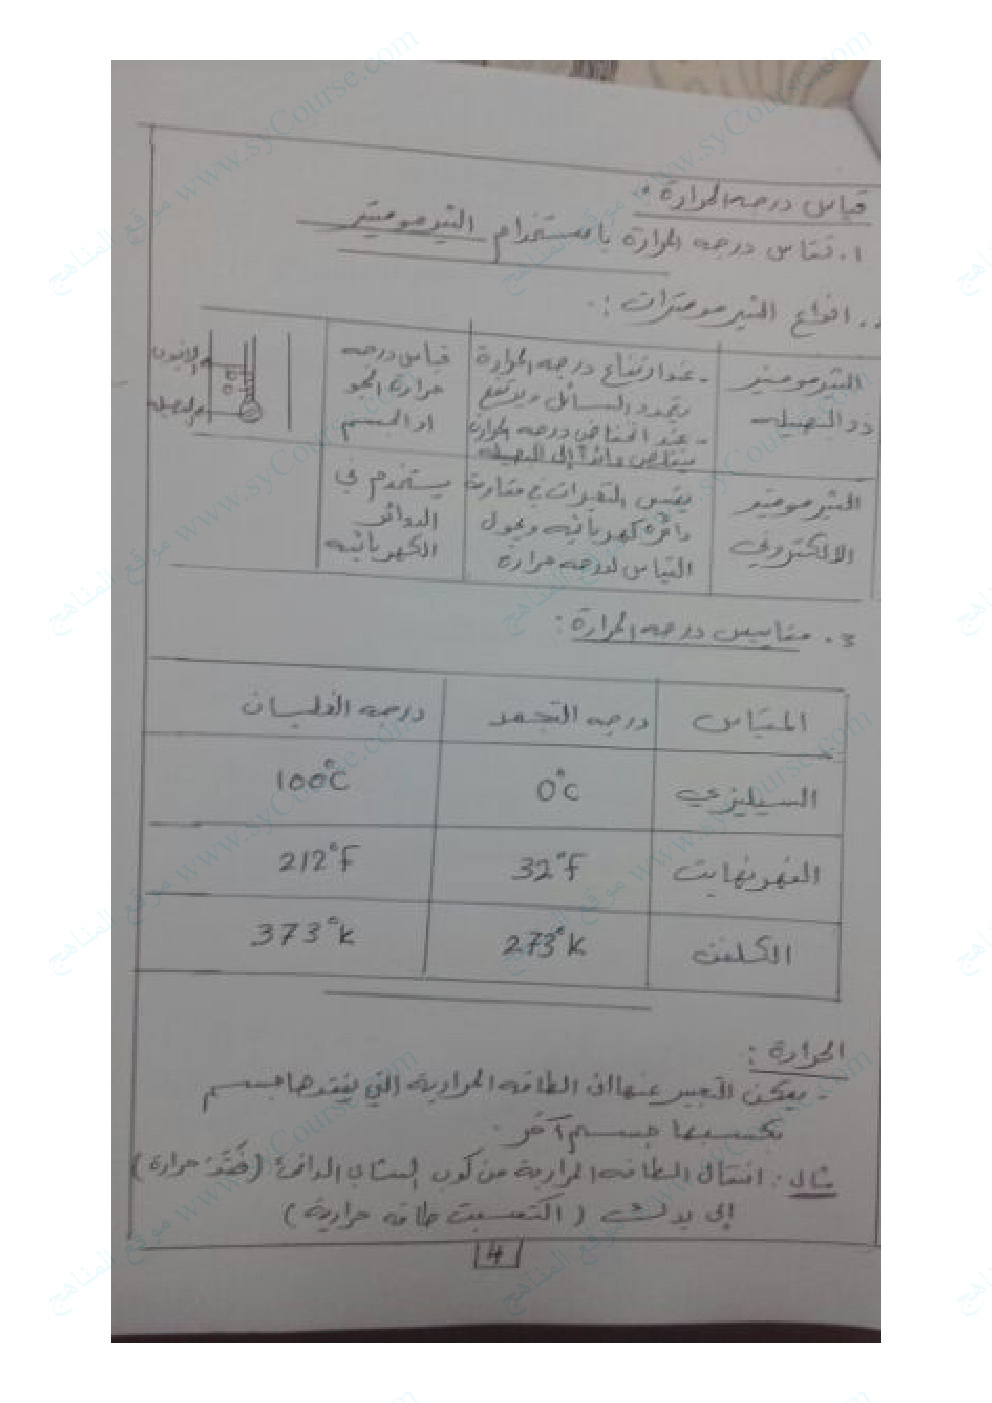 قياس درجه الحرارة :
1. تقاس درجه الحرارة باستخدام الثيرمومتير
.. انواع الثيرمومترات :
الثيرمومتير ذو البصيله
- عند ارتفاع درجه الحرارة
يتمدد السائل ويرتفع
- عند انخفاض درجه الحرارة
يتقلص عائداً إلى البصيله
قياس درجه
حرارة الجو
او الجسم
الانبوب
البصيله
الثيرمومتير
الالكتروني
يقيس التغيرات في مقاومة
دائره كهربائيه ويحول
القياس لدرجه حرارة
يستخدم في
الدوائر
الكهربائيه
3. مقاييس درجه الحرارة :
المقياس درجه التجمد درجه الغليان
السيليزي 0°C 100°C
الفهرنهايت 32°F 212°F
الكلفن 273°K 373°K
الحرارة :
- يمكن التعبير عنها ان الطاقه الحرارية التي يفقدها جسم
يكسبها جسم آخر .
مثال : انتقال الطاقه الحرارية من كوب الشاي الدافئ (فَقَدَ حرارة)
إلى يدك (اكتسبت طاقه حرارية)
4
موقع المناهج www.syCourse.com